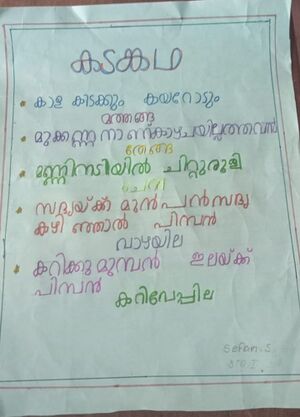 കടങ്കഥ
കാള കിടക്കും കയറോടും
മത്തങ്ങ
മുക്കണ്ണനാണ് കാഴ്ചയില്ലത്തവൻ
തേങ്ങ
മണ്ണിനടിയിൽ ചിറ്റുരുളി
ചേന
സദ്യയ്ക്ക് മുൻപൻ സദ്യ
കഴിഞ്ഞാൽ പിമ്പൻ
വാഴയില
കറിക്കു മുമ്പൻ ഇലയ്ക്ക്
പിമ്പൻ
കറിവേപ്പില
Sefan. S
STD. I